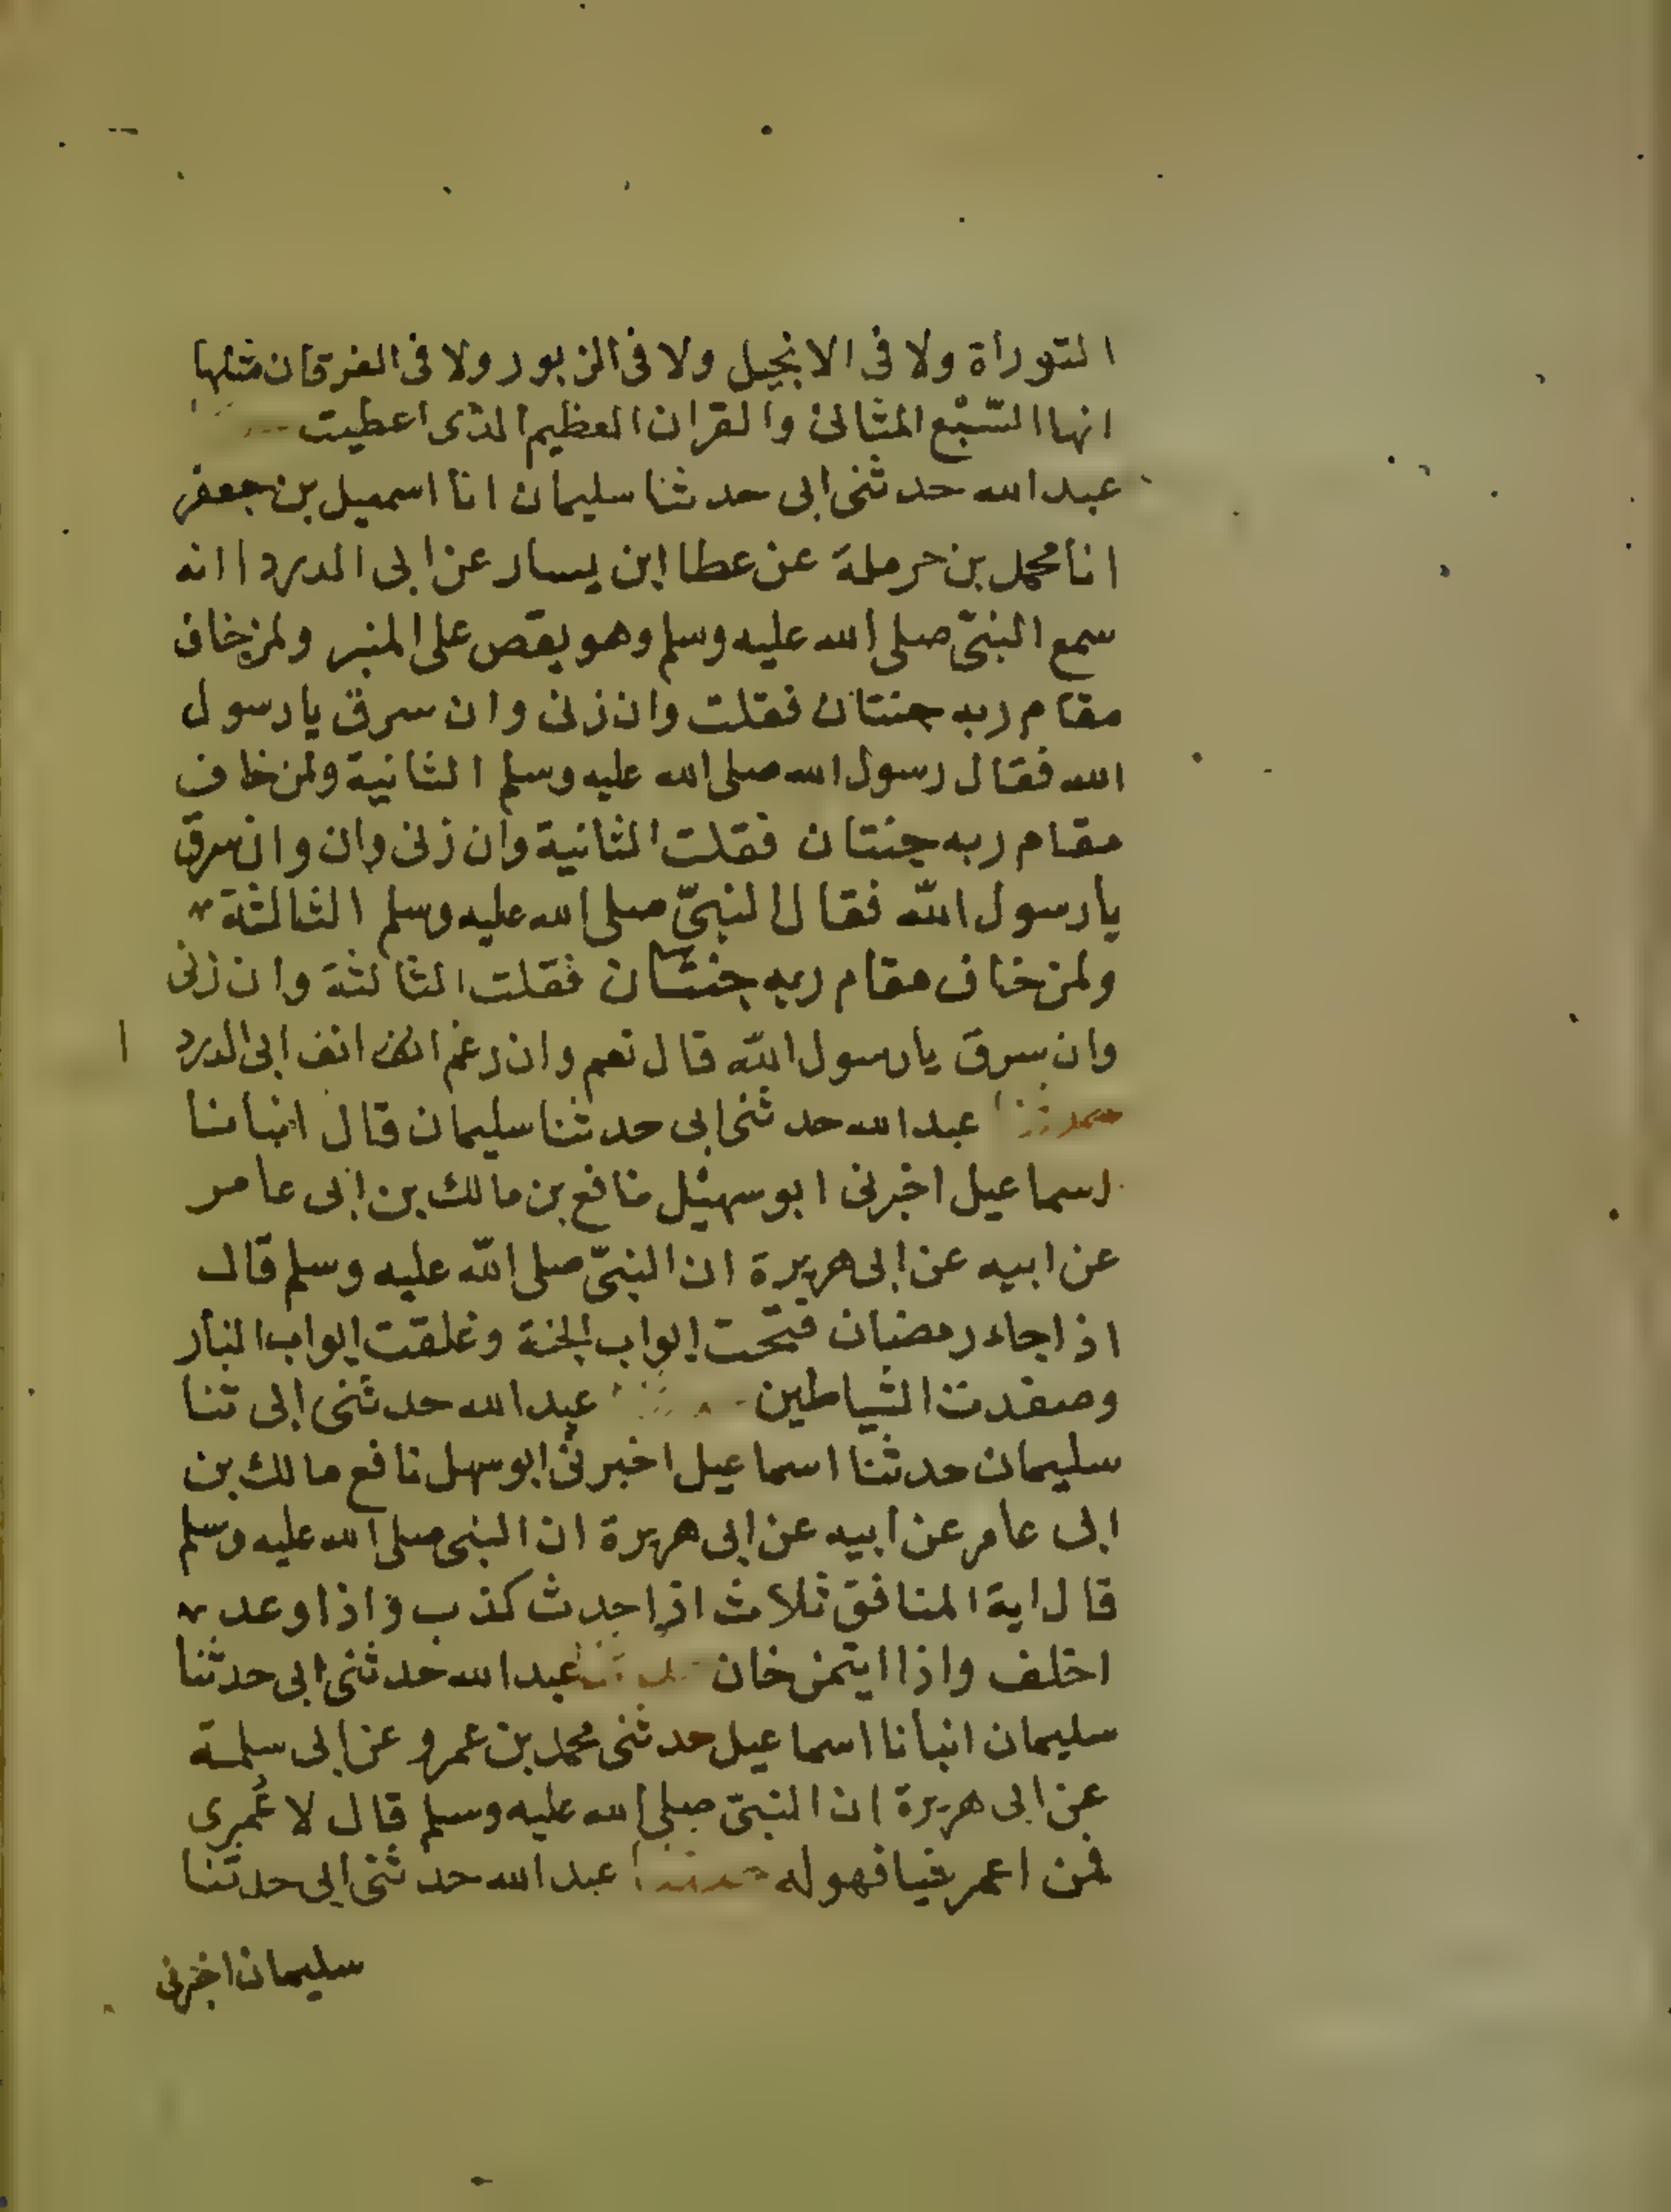 التوراة ولا فى الانجيل ولا فى الزبور ولا فى الفرقان مثلها
انها السّبْع المثانى والقران العظيم الذى اعطيت
عبد الله حدثنى ابى حدثنا سليمان انا اسمعيل بن جعفر
انا محمد بن حرملة عن عطا ابن يسار عن ابى الدردا انه
سمع النبىّ صلى الله عليه وسلم وهو يقص على المنبر ولمن خاف
مقام ربه جنتان فقلت وان زنى وان سرق يا رسول
الله فقال رسول الله صلى الله عليه وسلم الثانية ولمن خاف
مقام ربه جنتان فقلت الثانية وان زنى وان وان سرق
يا رسول اللّه فقال النبىّ صلى الله عليه وسلم الثالثة
ولمن خاف مقام ربه جنتان فقلت الثالثة وان زنى
وان سرق يا رسول اللّه قال نعم وان رغم انف ابى الدردا
حدثنا عبد الله حدثنى ابى حدثنا سليمان قال انبانا
اسماعيل اخبرنى ابو سهيل نافع بن مالك بن ابى عامر
عن ابيه عن ابى هريرة ان النبىّ صلى اللّه عليه وسلم قال
اذا جاء رمضان فتحت ابواب الجنة وغلقت ابواب النار
وصفدت الشياطين عبد الله حدثنى ابى ثنا
سليمان حدثنا اسماعيل اخبرنى ابو سهل نافع مالك بن
ابى عامر عن ابيه عن ابى هريرة ان النبى صلى الله عليه وسلم
قال اية المنافق ثلاث اذا حدث كذب واذا وعد
اخلف واذا ايتمن خان حدثنا عبد الله حدثنى ابى حدثنا
سليمان انبأنا اسماعيل حدثنى محمد بن عمرو عن ابى سلمة
عن ابى هريرة ان النبىّ صلى الله عليه وسلم قال لا عُمرى
فمن اعمر شيا فهو له حدثنا عبد الله حدثنى ابى حدثنا
سليمان اخبرنى